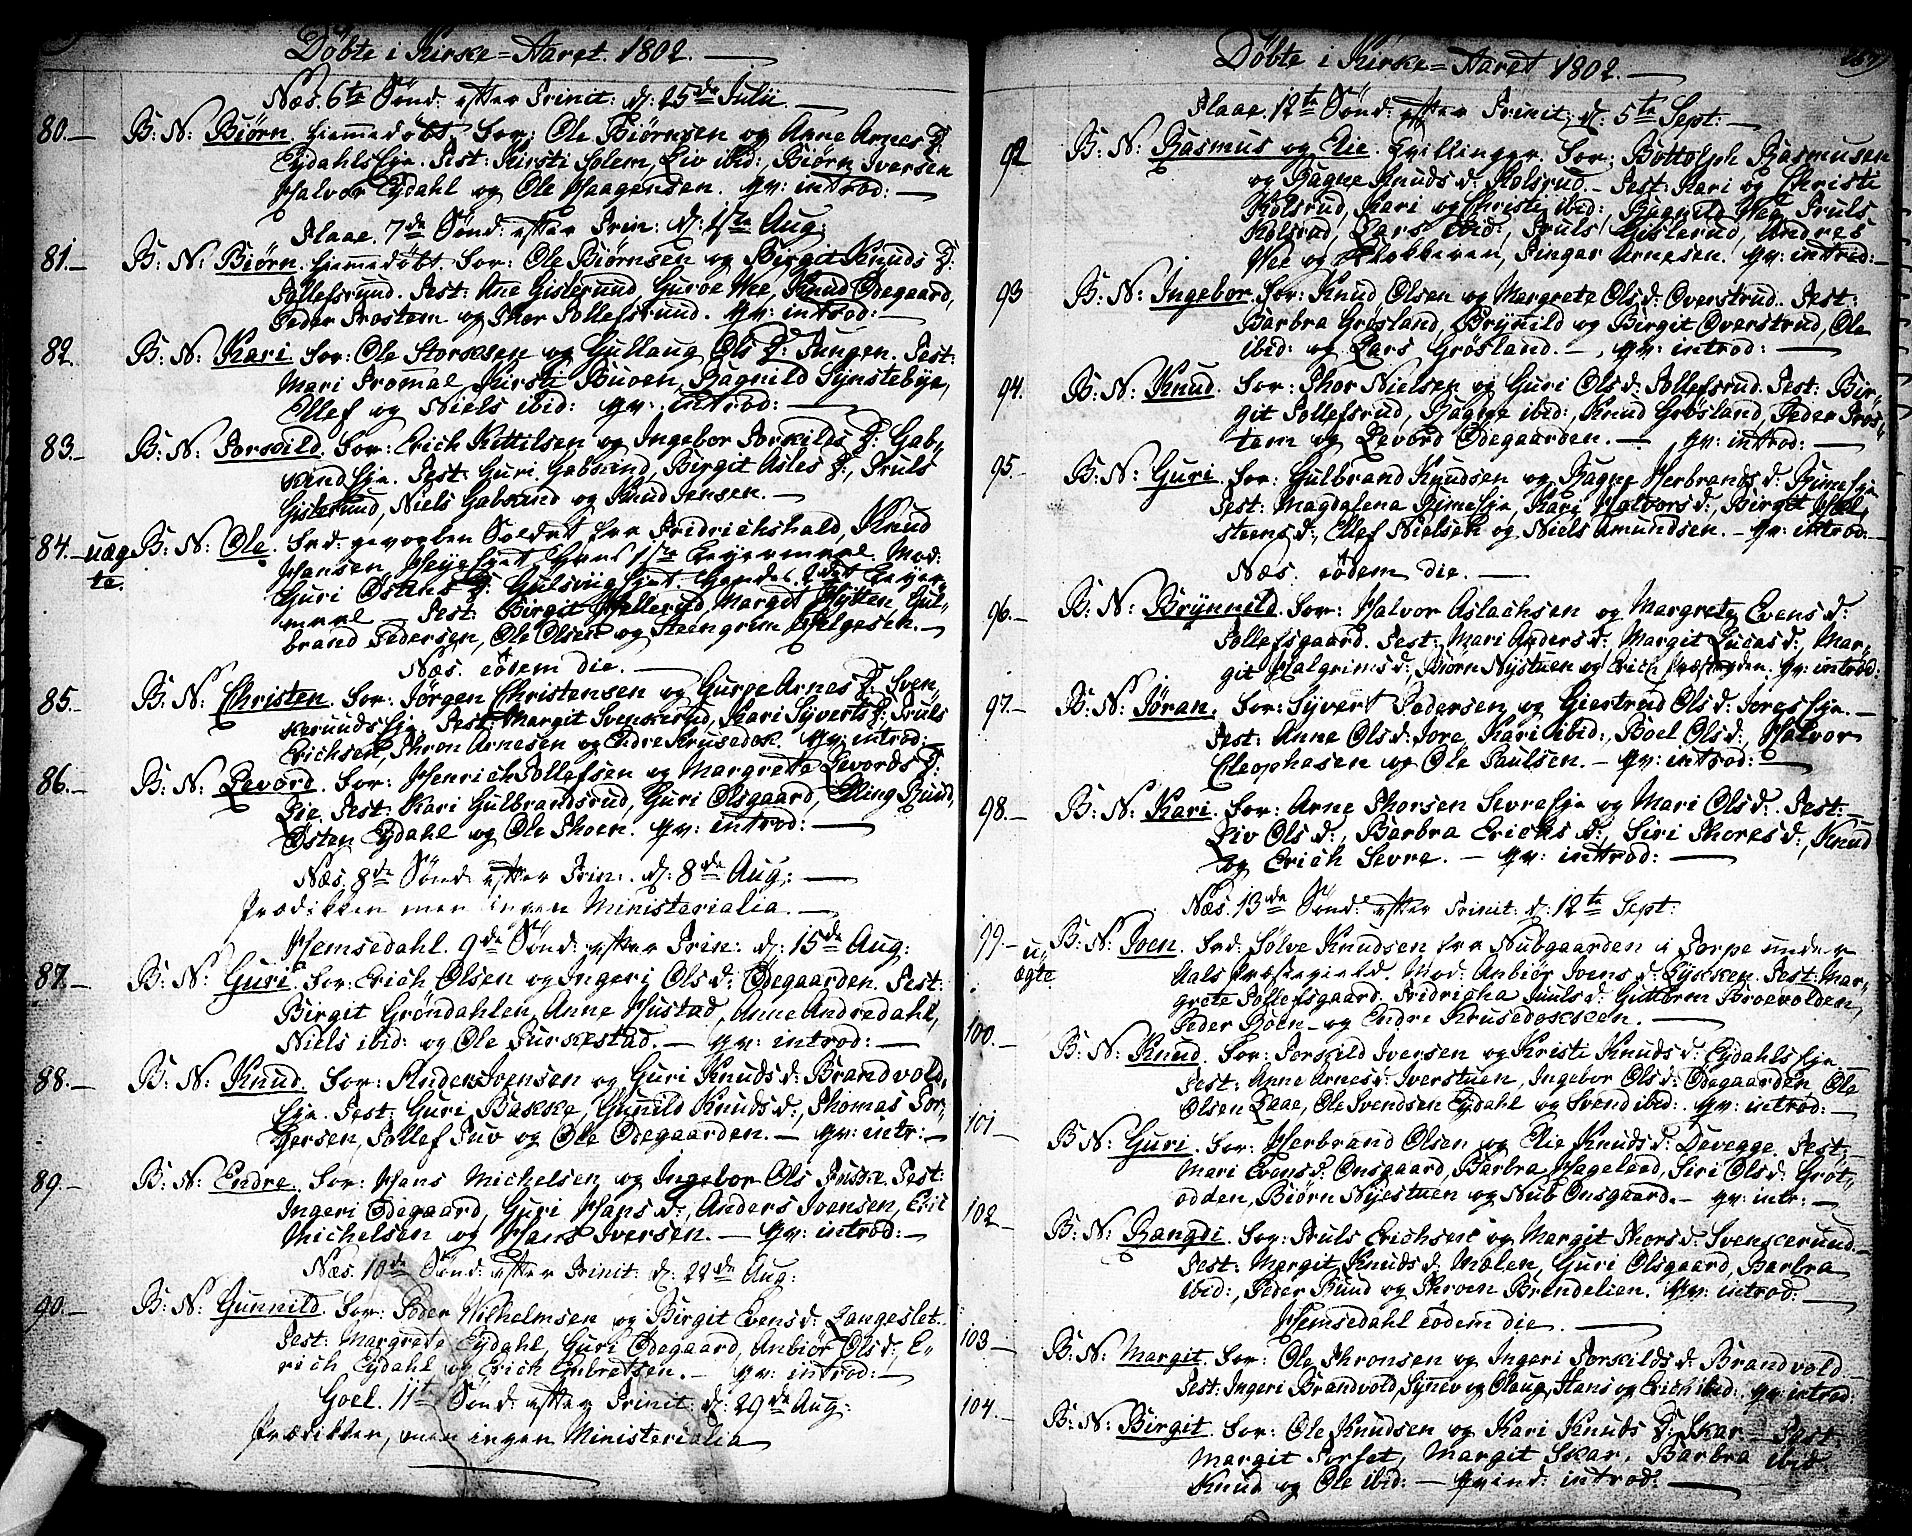 Döbte i Kirke=Aaret. 1802.
Næs. 6te Sönd: efter Trinit: d: 25de Julii.
80. B: N: Biörn. hiemmedöbt. For: Ole Biörnsen og Anne Arnes D:
Eydahls Eje. Test: Kirsti Solem, Liv ibid:, Biörn Iversen
Halvor Eydahl og Ole Haagensen. Qv: introd:
Flaae. 7de Sönd: efter Trin: d: 1ste Aug:
81. B: N: Biörn. hiemmedöbt. For: Ole Biörnsen og Birgit Knuds D:
Tollefsruud. Test: Ane Gislerund, Guroe Wee, Knud Ödegaard,
Peder Trostem og Thor Tollefsruud. Qv: introd:
82. B: N: Kari. For: Ole Storksen og Gullaug Ols D: Tungen. Test:
Mari Tromal, Kirsti Buven, Ragnild Synstebye,
Ellef og Niels ibid: Qv: introd:
83. B: N: Torkild. For: Erich Kittilsen og Ingebor Torkilds D: Gab,
kind Eje. Test: Guri Gabkind, Birgit Asles D:, Truls
Gislerund, Niels Gabkind og Knud Jensen.
84. uæg B: N: Ole. Fad: gevorben Soldat fra Fridrichshald, Knud
te. Hansen, Heye Hans 1ste Leyermaal. Mod:
Guri Östens D: Gulsvig Hendes 2det Leyer
maal Test: Birgit Hellerud, Margit Hytten, Gul,
brand Pedersen, Ole Olsen og Steengrim Helgesen.
Næs. eodem die.
85. B: N: Christen. For: Jörgen Christensen og Gurge Arnes D: Sven,
kerunds Eje. Test: Margit Svenkerud, Kari Syverts D: Truls
Erichsen, Thron Arnesen og Endre Krusedok. Qv: introd:
86. B: N: Levord. For: Henrich Tollefsen og Margrete Levords D:
Lie. Test: Kari Gulbrandsrud, Guri Olsgaard, Elling Ruud,
Östen Eydahl og Ole Thoen. Qv: introd:
Næs. 8de Sönd: efter Trin: d: 8de Aug:
Prædikken men ingen Ministerialia.
Hemsedahl. 9de Sönd: efter Trin: d: 15de Aug:
87. B: N: Guri. For: Erich Olsen og Ingeri Ols d: Ödegaarden. Test:
Birgit Gröndahlen, Anne Hustad, Anne Andredahl,
Niels ibid: og Ole Turkestad. Qv: introd:
88. B: N: Knud. For: Anders Ivensen og Guri Knuds d: Brandvold,
Eje. Test: Guri Bakke, Gunild Knuds d:, Thomas Tor,
gersen, Tollef Tuv og Ole Ödegaarden. Qv: intr:
89. B: N: Endre. For: Hans Michelsen og Ingebor Ols Test:
Ingeri Ödegaard, Guri Hans d:, Anders Ivensen, Eric
Michelsen og Hans Iversen. Qv: introd:
Næs. 10de Sönd: efter Trinit: d: 22de Aug:
90. B: N: Gunnild. For: Peder Wilhelmsen og Birgit Evens d: Langeslet.
Test: Margrete Eydahl, Guri Ödegaard, Anbiör Ols d:, E,
rich Eydahl og Erich Enbretsen. Qv: introd:
Goel. 11te Sönd: efter Trinit: d: 29de Aug:
Prædikken, men ingen Ministerialia
Döbte i Kirke=Aaret 1802.
Flaae. 12te Sönd: efter Trinit: d: 5te Sept:
92 B: N: Rasmus og Elie. Tvillinger. For: Bottolph Rasmusen
og Ragne Knuds d: Kolsrud. Test: Kari og Christi
Kolsrud, Kari og Christi ibid:, Ragnild Wee, Truls
Kolsrud, Lars ibid:, Truls Gislerud, Andres
Wee og Klokkeren, Singar Arnesen. Qv: introd:
93 B: N: Ingebor. For: Knud Olsen og Margrete Ols d: Overstrud. Test:
Barbra Grösland, Brynild og Birgit Overstrud, Ole
ibid: og Lars Grösland. Qv: introd:
94. B: N: Knud. For: Thor Nielsen og Guri Ols d: Tollefsrud. Test: Bir,
git Tollefsrud, Ragne ibid:, Knud Grösland, Peder Tros,
tem og Levord Ödegaarden. Qv: introd:
95. B: N: Guri. For: Gulbrand Knudsen og Ragne Herbrands d: Rime Eje
Test: Magdalena Rime Eje, Kari Halvors d:, Birgit Hal,
steens d:, Ellef Nielsen og Niels Amundsen. Qv: introd:
Næs. eodem die.
96. B: N: Brynnild. For: Halvor Aslachsen og Margrete Evens d:
Tollefsgaard. Test: Mari Anders d:, Margit Lucas d:, Mar,
git Halgrims d:, Biörn Nystuen og Erich Qv: introd:
97. B: N: Jöran. For: Syvert Pedersen og Giertrud Ols d: Jores Eje.
Test: Anne Ols d: Jore, Kari ibid:, Boel Ols d:, Halvor
Cleophasen og Ole Paulsen. Qv: introd:
98. B: N: Kari. For: Arne Thorsen Sevre Eje og Mari Ols d: Test:
Liv Ols d:, Barbra Erichs d:, Siri Thores d:, Knud
og Erich Sevre. Qv: introd:
Næs. 13de Sönd: efter Trinit: d: 12te Sept:
99. u, B: N: Joen. Fad: Sölve Knudsen fra Nubgaarden i Torpe under
ægte Aals Præstegield. Mod: Anbiör Joens d: Lykken. Test: Mar,
grete Tollefsgaard. Fridricha Juuls d: Guttorm Broevolden,
Peder Roen og Endre Krusedokken.
100. B: N: Knud. For: Torkild Iversen og Kristi Knuds d: Eydahls Eje
Test: Anne Arnes d: Iverstuen, Ingebor Ols d: Ödegaarden, Ole
Olsen Laae, Ole Svendsen Eydahl og Svend ibid: Qv: introd:
101 B: N: Guri. For: Herbrand Olsen og Elie Knuds d: Devegge. Test:
Mari Evens d: Onsgaard, Barbra Hagelaad, Siri Ols d: Gröt,
odden, Biörn Nyestuen og Nub Onsgaard. Qv: intr:
102 B: N: Rangdi. For: Truls Erichsen og Margit Thors d: Svenkerund.
Test: Margit Knuds d: Mælen, Guri Olsgaard, Barbra
ibid:, Peder Ruud og Throen Brendelien. Qv: introd:
Hemsedahl eodem die.
103 B: N: Margit. For: Ole Thronsen og Ingeri Torkilds d: Brandvold
Test: Ingeri Brandvold, Synev og Olaug, Hans og Erich ibid: Qv: introd:
104. B: N: Birgit. For: Ole Knudsen og Kari Knuds D: Skar Test:
Margit Torset, Margit Skar, Barbra ibid:
Knud og Ole ibid: Qvind: introd: